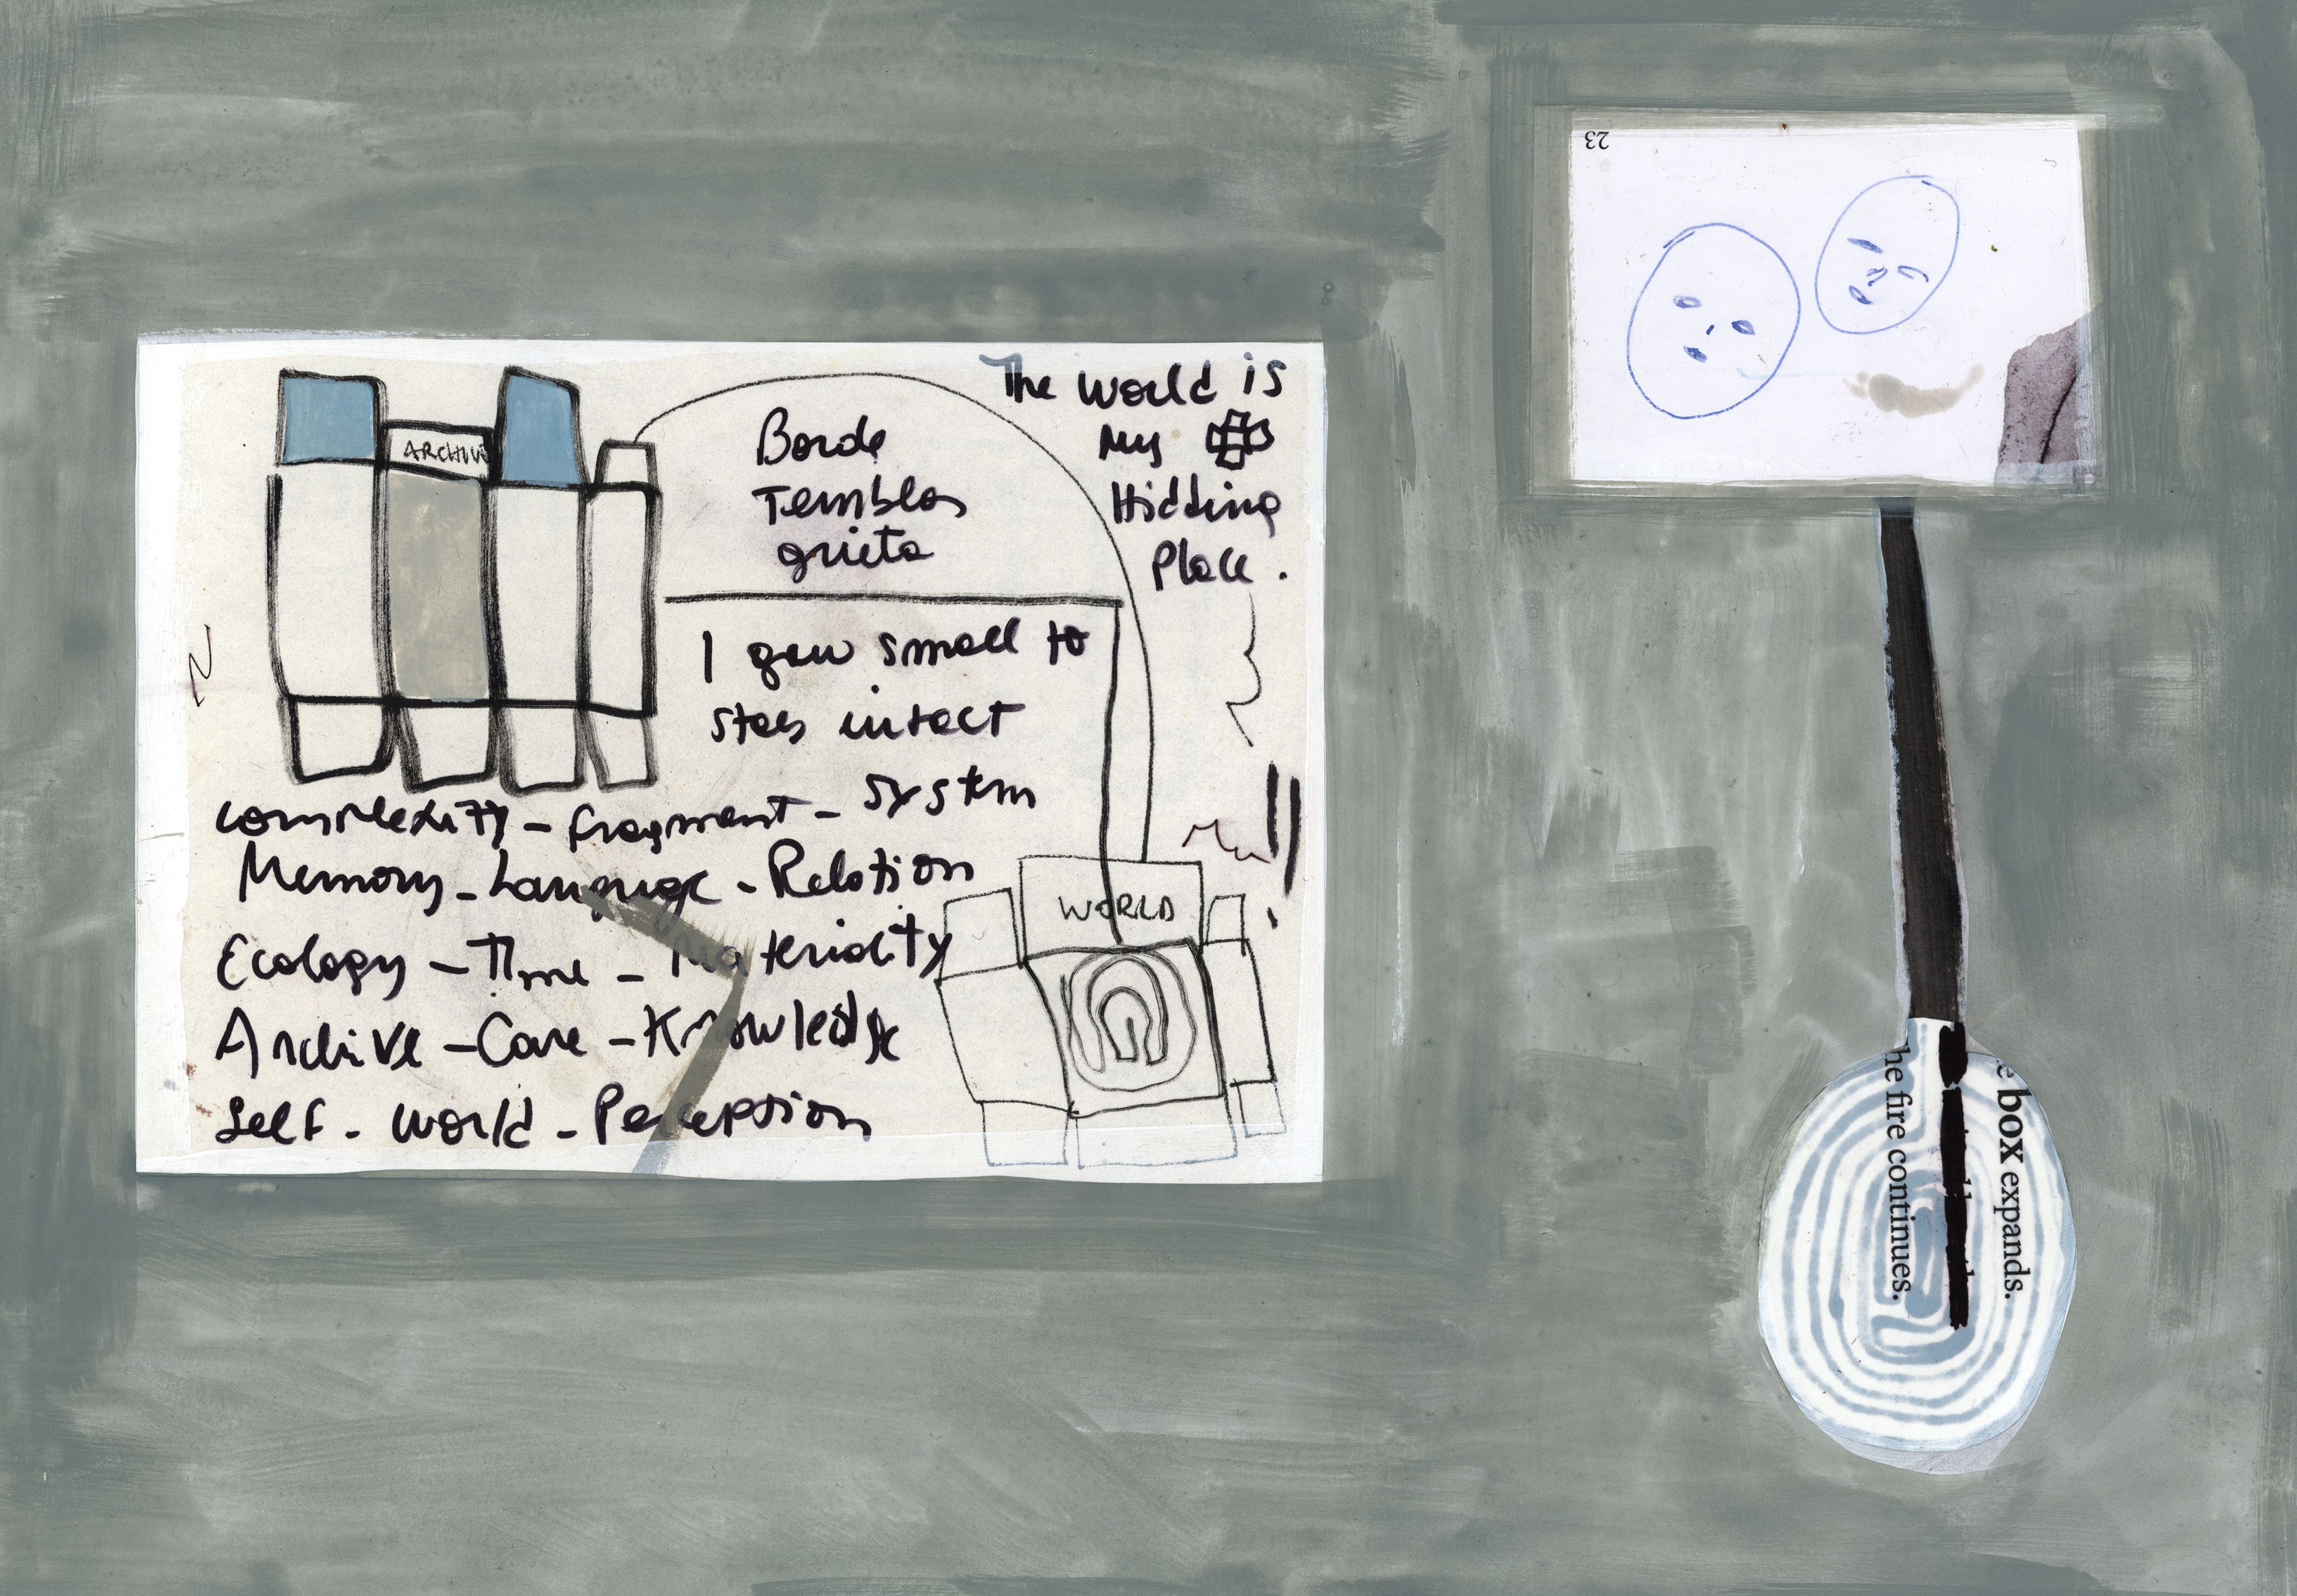 ARCHIV
The World is
My
Hidding
Place.
Borde
Temblor
grieta
I grew small to
stay intact
complexity - fragment - system
Memory - Language - Relation
Ecology - Time - Materiality
Archive - Care - Knowledge
Self - World - Perception
WORLD
23
e box expands.
he fire continues.